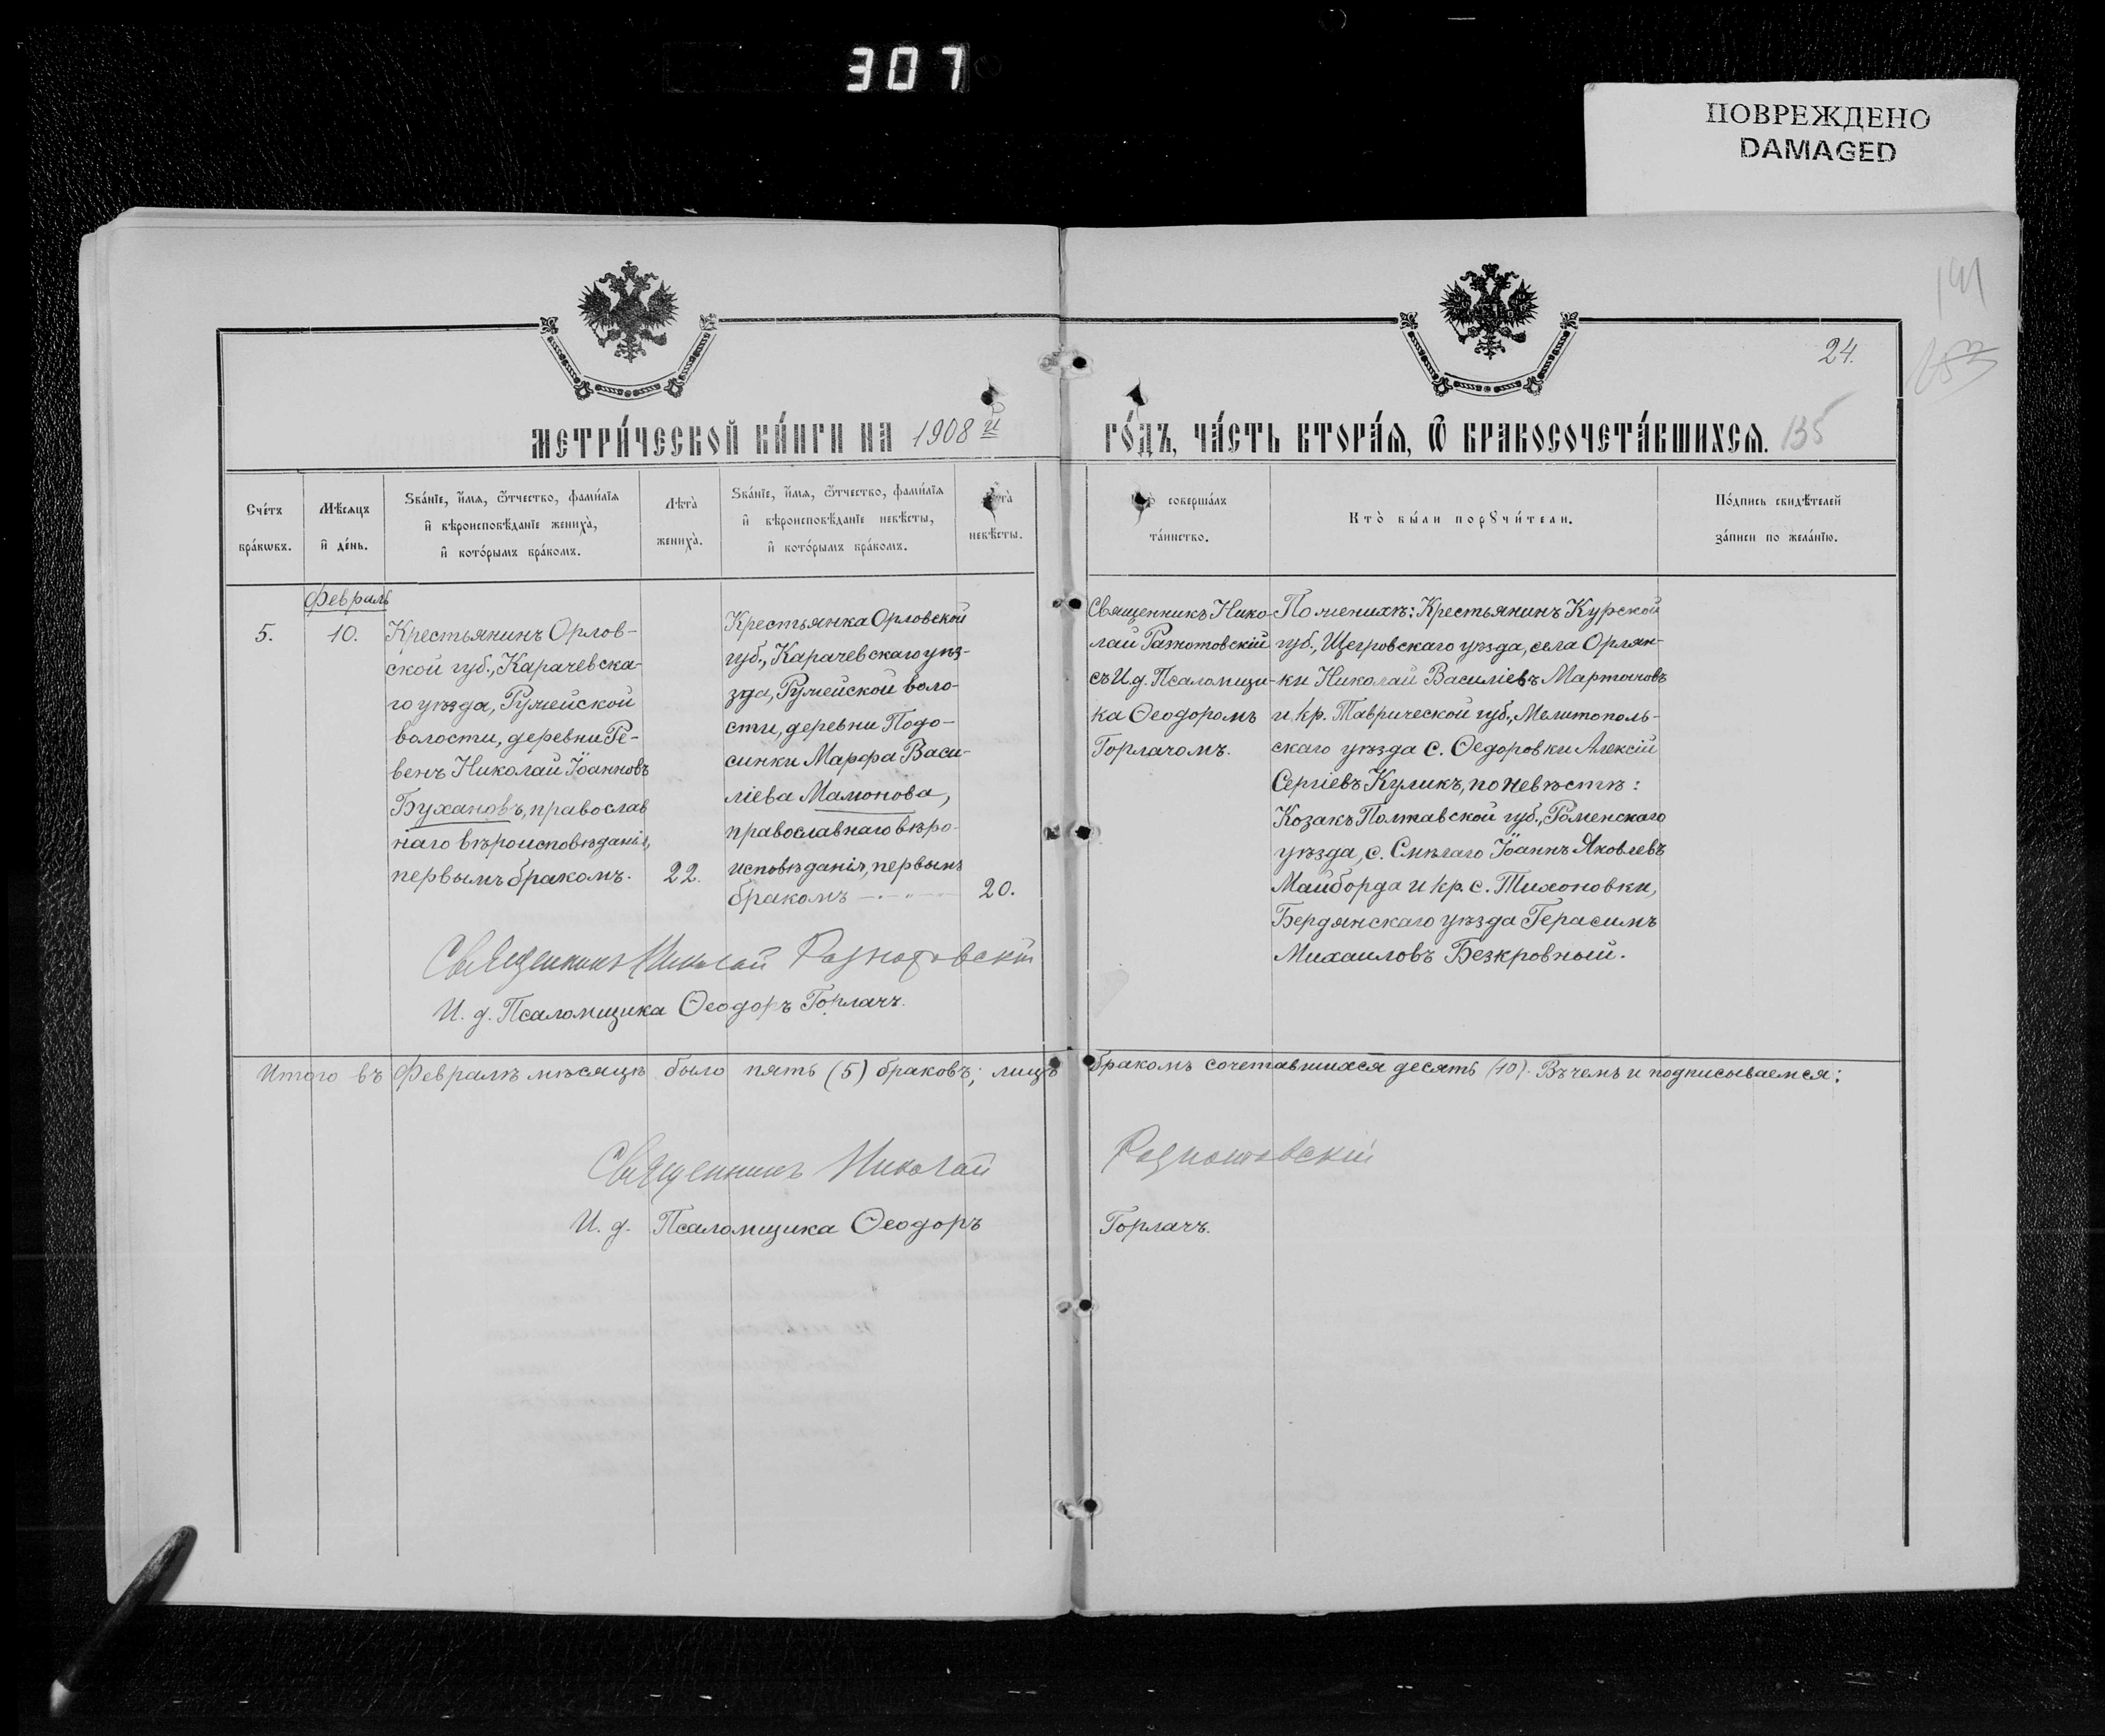 307
ПОВРЕЖДЕНО
DAMAGED
191
24.
метри́ческой кни́ги на 1908 й
го́дъ, ча́сть втора́ѧ, ѡ҃ бракосочета́вшихсѧ. 135
Сче́тъ бра́кѡвъ.
Мѣ́сѧцъ и҆ де́нь.
Ѕва́нїе, и҆́мѧ, ѻ҆́тчество, фами́лїѧ
и҆ вѣроисповѣ́данїе жениха̀,
и҆ кото́рымъ бра́комъ.
Лѣта̀ жениха̀.
Ѕва́нїе, и҆́мѧ, ѻ҆́тчество, фами́лїѧ
и҆ вѣроисповѣ́данїе невѣ́сты,
и҆ кото́рымъ бра́комъ.
невѣ́сты.
соверша́лъ
та́инство.
Кто̀ бы́ли порꙋчи́тели.
По́дпись свидѣ́телей
за́писи по жела́нїю.
Февраль
5.
10.
Крестьянинъ Орлов-
ской губ., Карачевска-
го уѣзда, Ружейской
волости, деревни Ре-
венъ Николай Іоанновъ
Бухановъ, православ
наго вѣроисповѣданія,
первымъ бракомъ.
22.
Крестьянка Орловской
губ., Карачевскаго уѣз-
зда, Ружейской воло-
сти, деревни Подо-
синки Марфа Васи-
ліева Мамонова,
православнаго вѣро-
исповѣданія, первымъ
бракомъ
20.
Священникъ Нико-
лай Разнотовскій
съ И.д. Псаломщи-
ка Ѳеодоромъ
Горлачомъ.
По женихѣ: Крестьянинъ Курской
губ., Щегровскаго уѣзда, села Орлян-
ки Николай Василіевъ Мартыновъ
и кр. Таврической губ., Мелитополь-
скаго уѣзда с. Ѳедоровки Алексій
Сергіевъ Куликъ, по невѣстѣ:
Козакъ Полтавской губ., Роменскаго
уѣзда, с. Смѣлаго Іоаннъ Яковлевъ
Майборда и кр. с. Тихоновки,
Бердянскаго уѣзда Герасимъ
Михаиловъ Безкровный.
Священникъ Николай Разнотовскій
И. д. Псаломщика Ѳеодоръ Горлачъ.
Итого въ Февралѣ мѣсяцѣ было пять (5) браковъ; лицъ бракомъ сочетавшихся десять (10). Въ чемъ и подписываемся:
Священникъ Николай Разнотовскій
И. д. Псаломщика Ѳеодоръ Горлачъ.